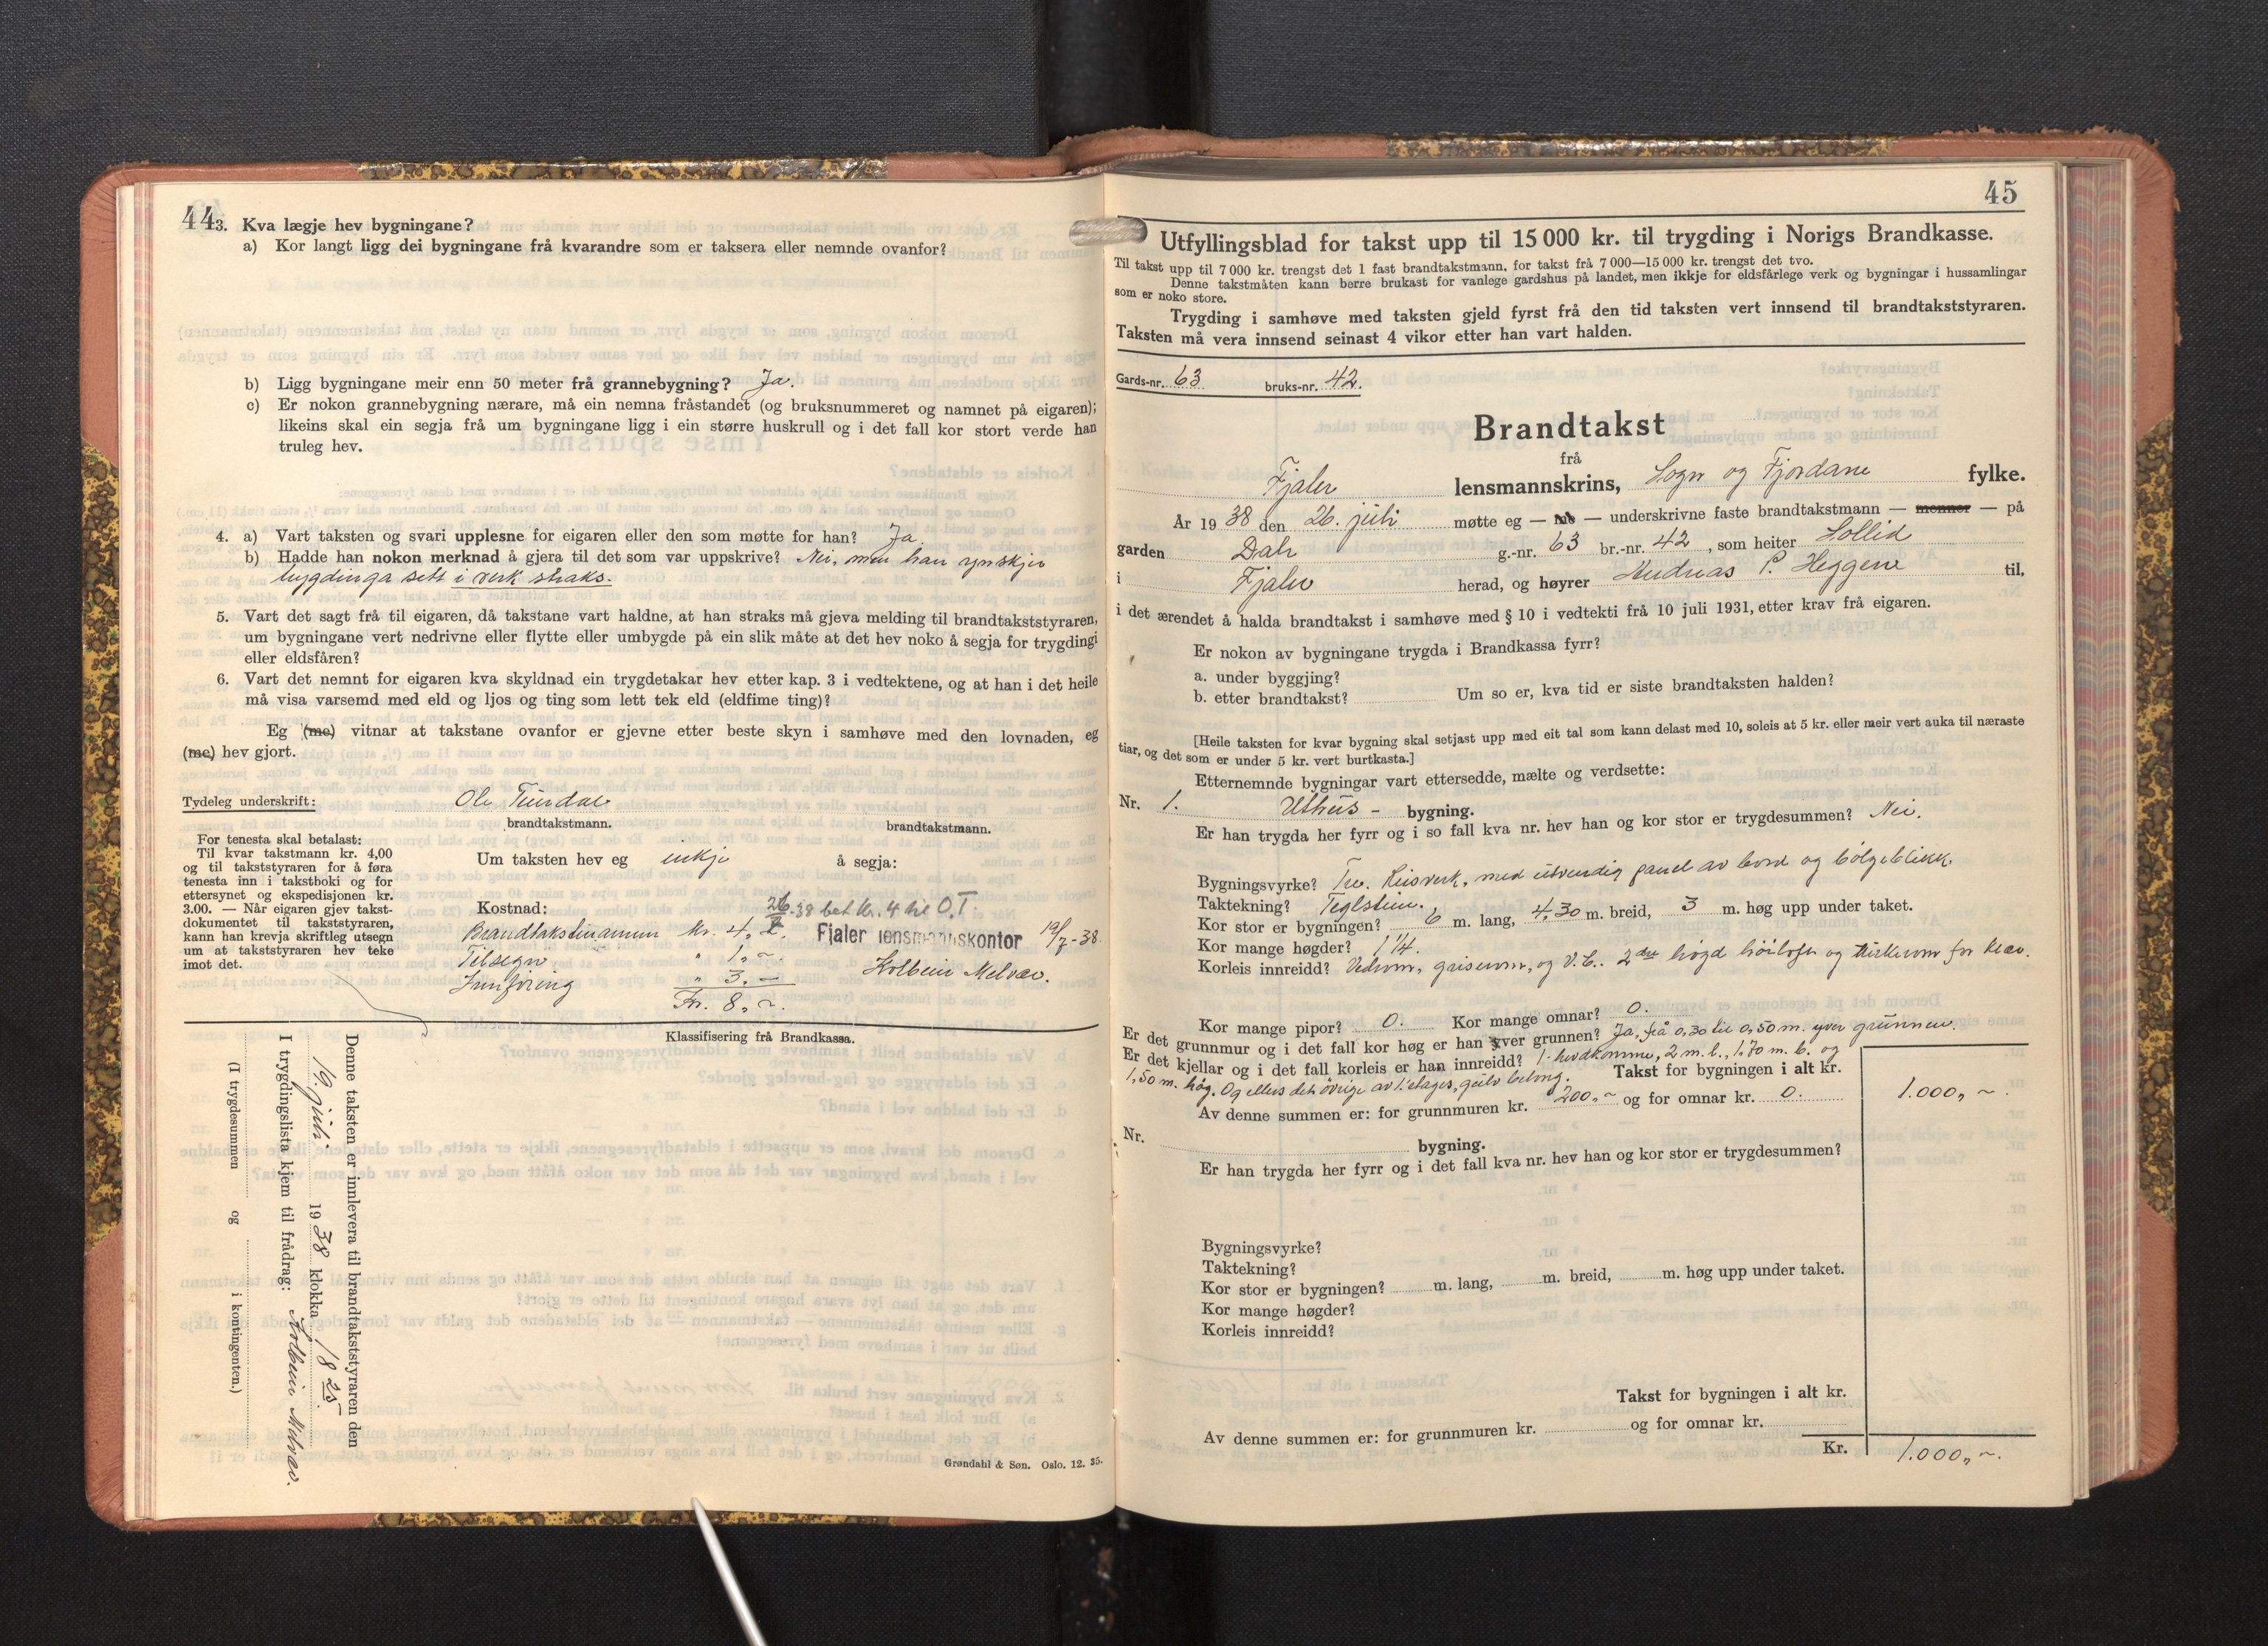 44
3. Kva lægje hev bygningane?
a) Kor langt ligg dei bygningane frå kvarandre som er taksera eller nemnde ovanfor?
b) Ligg bygningane meir enn 50 meter frå grannebygning? Ja.
c) Er nokon grannebygning nærare, må ein nemna fråstandet (og bruksnummeret og namnet på eigaren);
likeins skal ein segja frå um bygningane ligg i ein større huskrull og i det fall kor stort verde han
truleg hev.
4. a) Vart taksten og svari upplesne for eigaren eller den som møtte for han? Ja
b) Hadde han nokon merknad å gjera til det som var uppskrive? Nei, men han ynskjer
tygdinga sett i verk straks.
5. Vart det sagt frå til eigaren, då takstane vart haldne, at han straks må gjeva melding til brandtakststyraren,
um bygningane vert nedrivne eller flytte eller umbygde på ein slik måte at det hev noko å segja for trygdingi
eller eldsfåren?
6. Vart det nemnt for eigaren kva skyldnad ein trygdetakar hev etter kap. 3 i vedtektene, og at han i det heile
må visa varsemd med eld og ljos og ting som lett tek eld (eldfime ting)?
Eg (me) vitnar at takstane ovanfor er gjevne etter beste skyn i samhøve med den lovnaden, eg
(me) hev gjort.
Tydeleg underskrift: Ole
brandtakstmann. brandtakstmann.
For tenesta skal betalast:
Til kvar takstmann kr. 4,00
og til takststyraren for å føra
tenesta inn i takstboki og for
ettersynet og ekspedisjonen kr.
3.00. — Når eigaren gjev takst-
dokumentet til takststyraren,
kann han krevja skriftleg utsegn
um at takststyraren hev teke
imot det.
Um taksten hev eg inkje å segja:
Kostnad: 26/7-38 bet kr. 4 til O.T.
Brandtakstmannen kr. 4,- Fjaler lensmannskontor 19/7-38
Tilsegn " 1,-
Innføring " 3,- Kolbein Melvær.
Kr. 8,-
Klassifisering frå Brandkassa.
Denne taksten er innlevera til brandtakststyraren den
19. juli 1938 klokka 18 25
I trygdingslista kjem til frådrag: Kolbein Melvær.
(I trygdesummen og i kontingenten.)
Grøndahl & Søn. Oslo. 12. 35.
45
Utfyllingsblad for takst upp til 15 000 kr. til trygding i Norigs Brandkasse.
Til takst upp til 7 000 kr. trengst det 1 fast brandtakstmann, for takst frå 7 000—15 000 kr. trengst det tvo.
Denne takstmåten kann berre brukast for vanlege gardshus på landet, men ikkje for eldsfårlege verk og bygningar i hussamlingar
som er noko store.
Trygding i samhøve med taksten gjeld fyrst frå den tid taksten vert innsend til brandtakststyraren.
Taksten må vera innsend seinast 4 vikor etter han vart halden.
Gards-nr. 63 bruks-nr. 42.
Brandtakst
frå
Fjaler lensmannskrins, Sogn og Fjordane fylke.
År 1938 den 26. juli møtte eg — me — underskrivne faste brandtakstmann — menner — på
garden Dale g.-nr. 63 br.-nr. 42, som heiter Sollid
i Fjaler herad, og høyrer Andreas P. Heggene til,
i det ærendet å halda brandtakst i samhøve med § 10 i vedtekti frå 10 juli 1931, etter krav frå eigaren.
Er nokon av bygningane trygda i Brandkassa fyrr?
a. under byggjing?
b. etter brandtakst? Um so er, kva tid er siste brandtaksten halden?
[Heile taksten for kvar bygning skal setjast upp med eit tal som kann delast med 10, soleis at 5 kr. eller meir vert auka til næraste
tiar, og det som er under 5 kr. vert burtkasta.]
Etternemnde bygningar vart ettersedde, mælte og verdsette:
Nr. 1. Uthus - bygning.
Er han trygda her fyrr og i so fall kva nr. hev han og kor stor er trygdesummen? Nei.
Bygningsvyrke? Tre. Reisverk, med utvendig panel av bord og bölgeblikk.
Taktekning? Teglstein.
Kor stor er bygningen? 6 m. lang, 4,30 m. breid, 3 m. høg upp under taket.
Kor mange høgder? 1 1/4.
Korleis innreidd? Vedrom, griserom, og V.C. 2dre høgd höiloft og tørkerom for klær.
Kor mange pipor? 0. Kor mange omnar? 0.
Er det grunnmur og i det fall kor høg er han yver grunnen? Ja, frå 0,30 til 0,50 m. yver grunnen.
Er det kjellar og i det fall korleis er han innreidd? 1. , 2 m. l., 1,70 m. b. og
1,50 m. høg. Og ellers det övrige av 1. etages, golv betong. Takst for bygningen i alt kr. 1.000,-
Av denne summen er: for grunnmuren kr. 200,- og for omnar kr. 0.
Nr. bygning.
Er han trygda her fyrr og i det fall kva nr. hev han og kor stor er trygdesummen?
Bygningsvyrke?
Taktekning?
Kor stor er bygningen? m. lang, m. breid, m. høg upp under taket.
Kor mange høgder?
Korleis innreidd?
Takst for bygningen i alt kr.
Av denne summen er: for grunnmuren kr. og for omnar kr.
Kr. 1.000,-